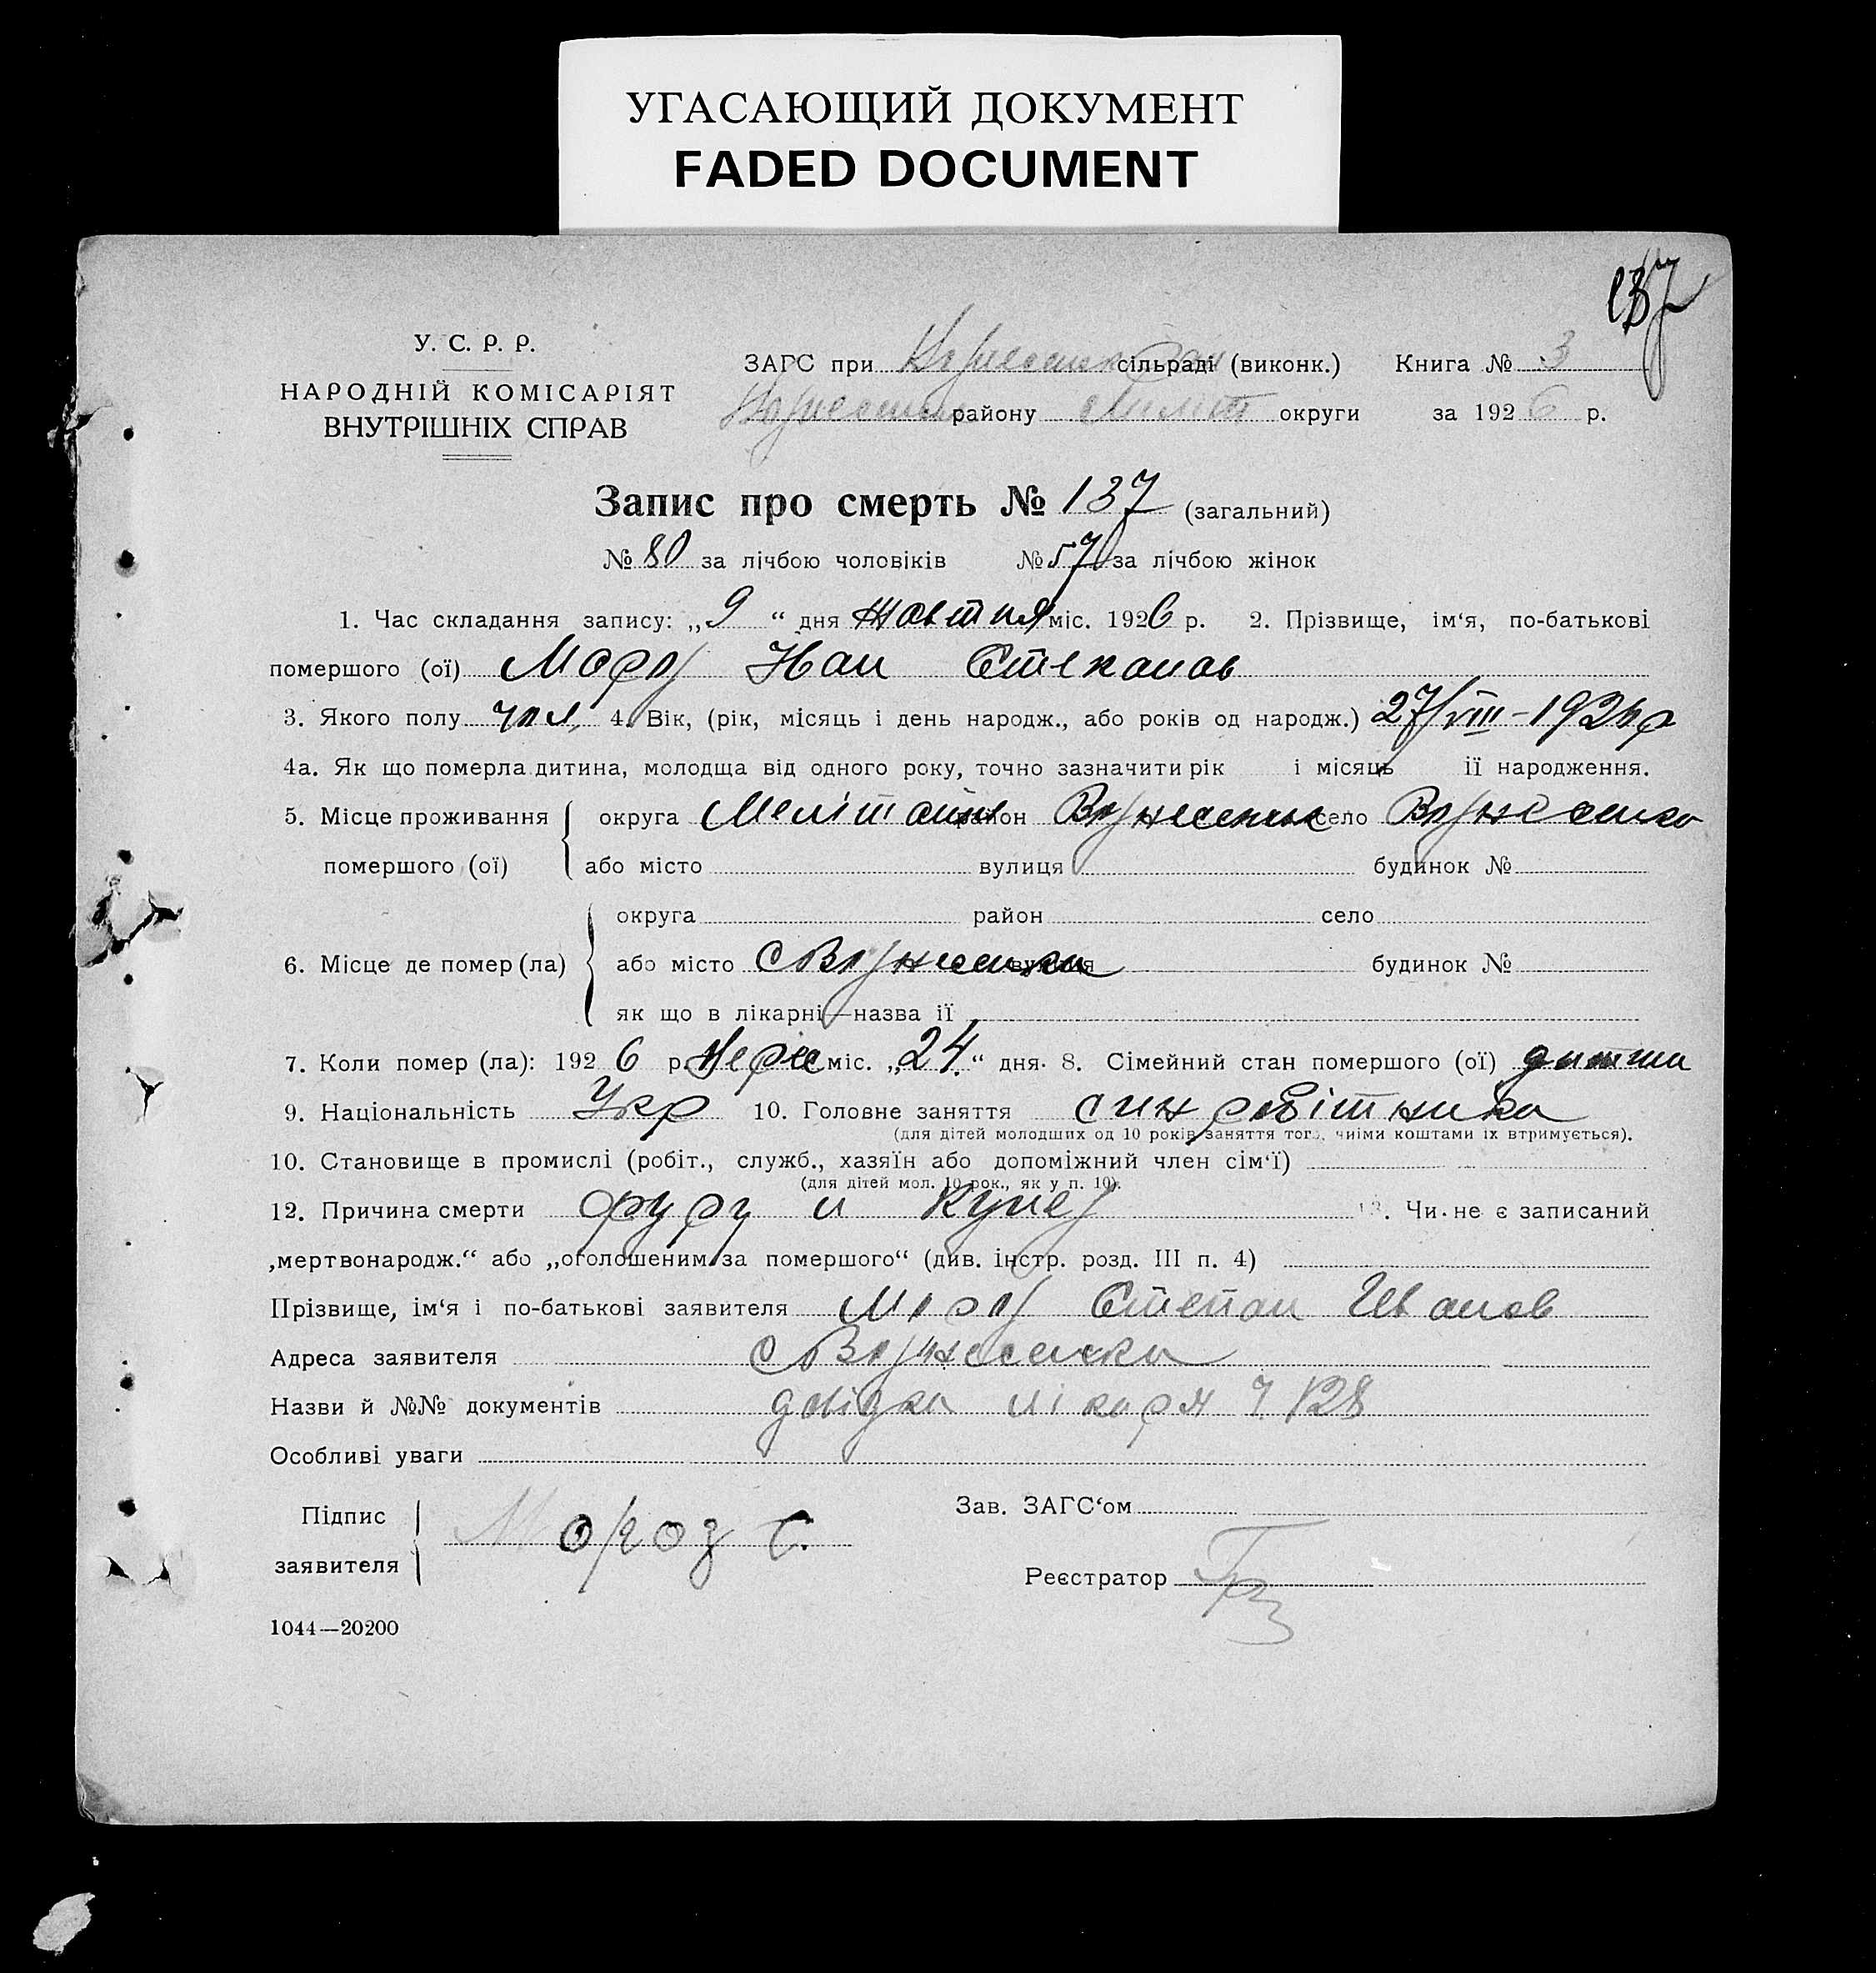 УГАСАЮЩИЙ ДОКУМЕНТ
FADED DOCUMENT
137
У. С. Р. Р.
НАРОДНІЙ КОМІСАРІЯТ
ВНУТРІШНІХ СПРАВ
ЗАГС при сільраді (виконк.) Книга № 3
району Меліт округи за 1926 р.
Запис про смерть № 137 (загальний)
№ 80 за лічбою чоловіків № 57 за лічбою жінок
1. Час складання запису: „9 “ дня Жовтня міс. 1926 р. 2. Прізвище, ім‘я, по-батькові
помершого (ої) Мороз Іван Степанов
3. Якого полу чол, 4. Вік, (рік, місяць і день народж., або років од народж.) 27/VIII-192 р
4а. Як що померла дитина, молодща від одного року, точно зазначити рік і місяць ії народження.
5. Місце проживання округа район село
помершого (ої) або місто вулиця будинок №
округа район село
6. Місце де помер (ла) або місто с Вознесенка вулиця будинок №
як що в лікарні—назва ії
7. Коли помер (ла): 1926 р. Верес міс. „24.“ дня. 8. Сімейний стан помершого (ої) дитина
9. Національність Укр 10. Головне заняття син робітника
(для дітей молодших од 10 років заняття того, чиіми коштами іх втримується).
10. Становище в промислі (робіт., служб., хазяїн або допоміжний член сім‘ї)
(для дітей мол. 10 рок., як у п. 10).
12. Причина смерти 13. Чи не є записаний
„мертвонародж.“ або „оголошеним за помершого“ (див. інстр. розд. III п. 4)
Прізвище, ім‘я і по-батькові заявителя Мороз Степан Иванов
Адреса заявителя с Вознесенка
Назви й №№ документів довідка лікаря Ч. 128
Особливі уваги
Підпис
заявителя Мороз С.
Зав. ЗАГС‘ом
Реєстратор
1044—20200